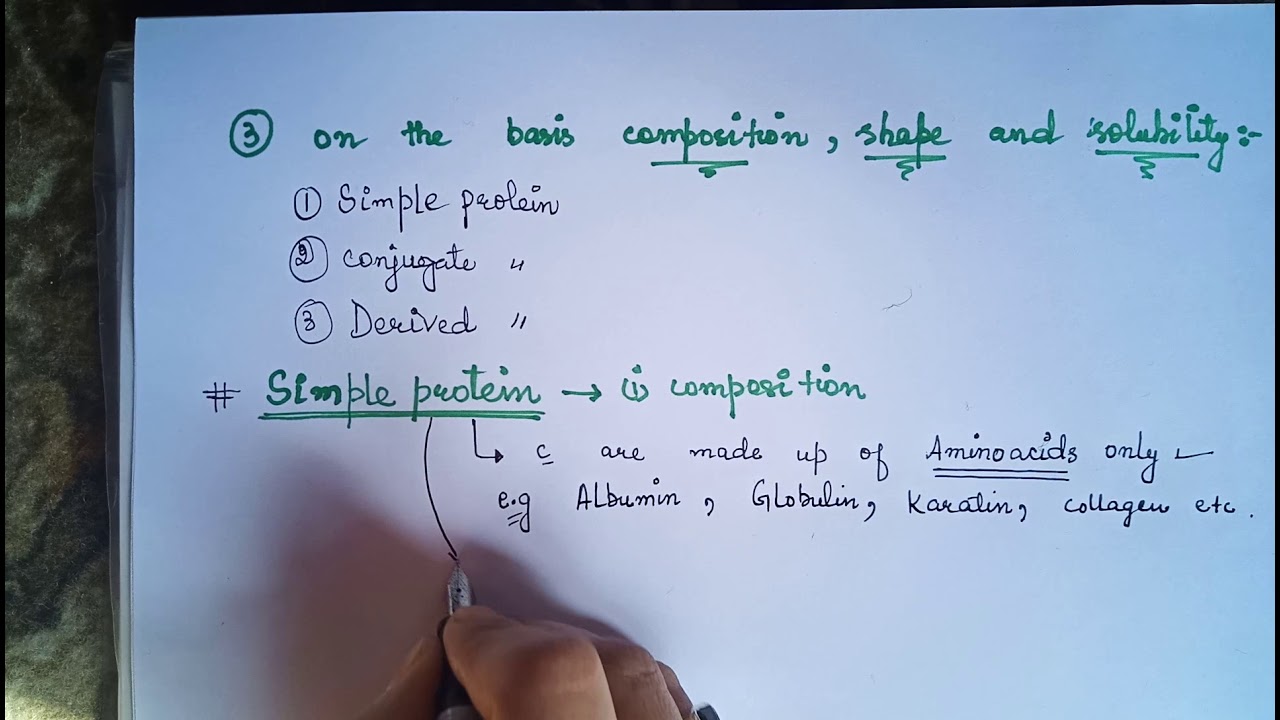 ③ on the basis composition, shape and solubility:-
① Simple protein
② conjugate "
③ Derived "
# Simple protein → (i) composition
↳ c are made up of Aminoacids only
e.g Albumin, Globulin, Karatin, collagen etc.